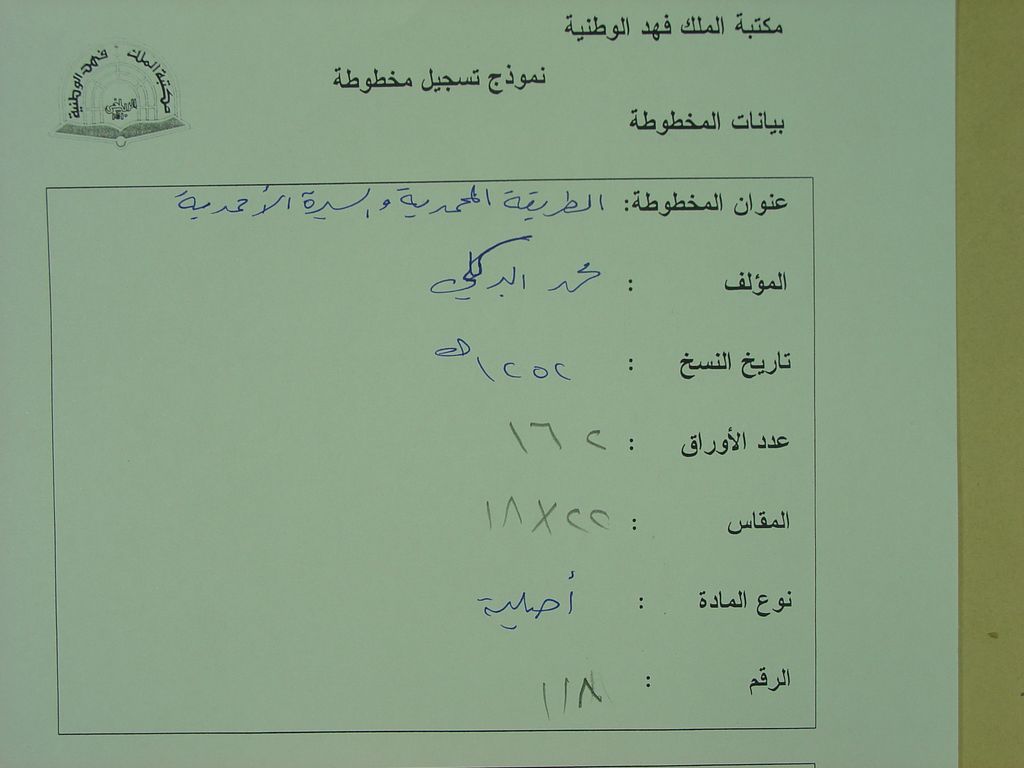 مكتبة الملك فهد الوطنية
مكتبة الملك فهد الوطنية
الرياض
نموذج تسجيل مخطوطة
بيانات المخطوطة
عنوان المخطوطة: الطريقة المحمدية والسيرة الأحمدية
المؤلف : محمد البركلي
تاريخ النسخ : ١٢٥٢هـ
عدد الأوراق : ١٦٢
المقاس : ٢٢×١٨
نوع المادة : أصلية
الرقم : ١١٨